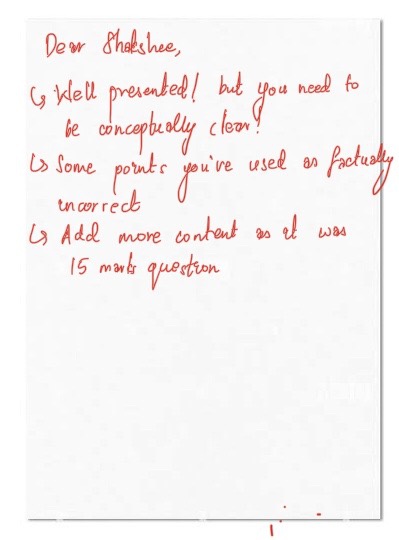 Dear Shakshee,
↳ Well presented! but you need to
be conceptually clear!
↳ Some points you've used as factually
incorrect
↳ Add more content as it was
15 marks question